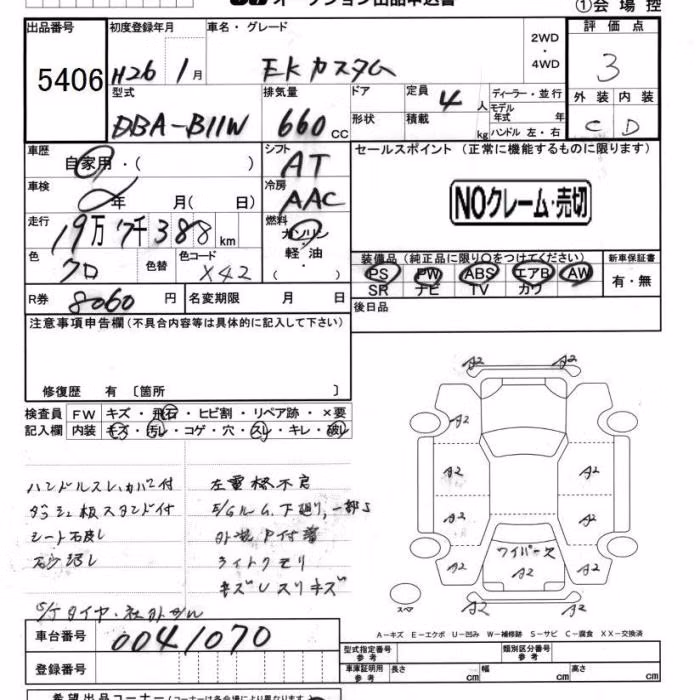 オークション出品申込書
①会場控
出品番号 初度登録年月 車名・グレード 評価点
5406 H26 1月 EKカスタム 2WD・4WD 3
型式 排気量 ドア 定員 4人 ディーラー・並行 外装 内装
DBA-B11W 660cc 形状 積載 kg モデル年式 年 ハンドル 左・右 C D
車歴 自家用・( ) シフト AT セールスポイント (正常に機能するものに限ります)
車検 年 月( 日) 冷房 AAC NOクレーム・売切
走行 19万7千388km 燃料 ガソリン・軽油・( )
装備品 (純正品に限り○をつけてください) 新車保証書
色 クロ 色替 色コード X42 PS PW ABS エアB AW 有・無
SR ナビ TV カワ
R券 8060円 名変期限 月 日 後日品
注意事項申告欄 (不具合内容等は具体的に記入して下さい)
修復歴 有 〔箇所 〕
検査員 FW キズ・飛石・ヒビ割・リペア跡・×要
記入欄 内装 キズ・汚レ・コゲ・穴・スレ・キレ・破レ
ハンドルスレ、カバー付
ダッシュ板スタンド付
シート右戻し
左電格不良
E/Gルーム、下廻り、一部S
外装P付着
ライトクモリ
キズUスリキズ
S/Tタイヤ・社外ホイル
A2 A2
A2 A2
A2 A2
A2 A2
ワイパー欠
A2 A2 A2
A2 A2
スペア
A-キズ E-エクボ U-凹み W-補修跡 S-サビ C-腐食 XX-交換済
車台番号 0041070
型式指定番号 参考 類別区分番号 参考
登録番号 車庫証明用 参考 長さ cm 幅 cm 高さ cm
希望出品コーナー (コーナーは各会場により異なります)